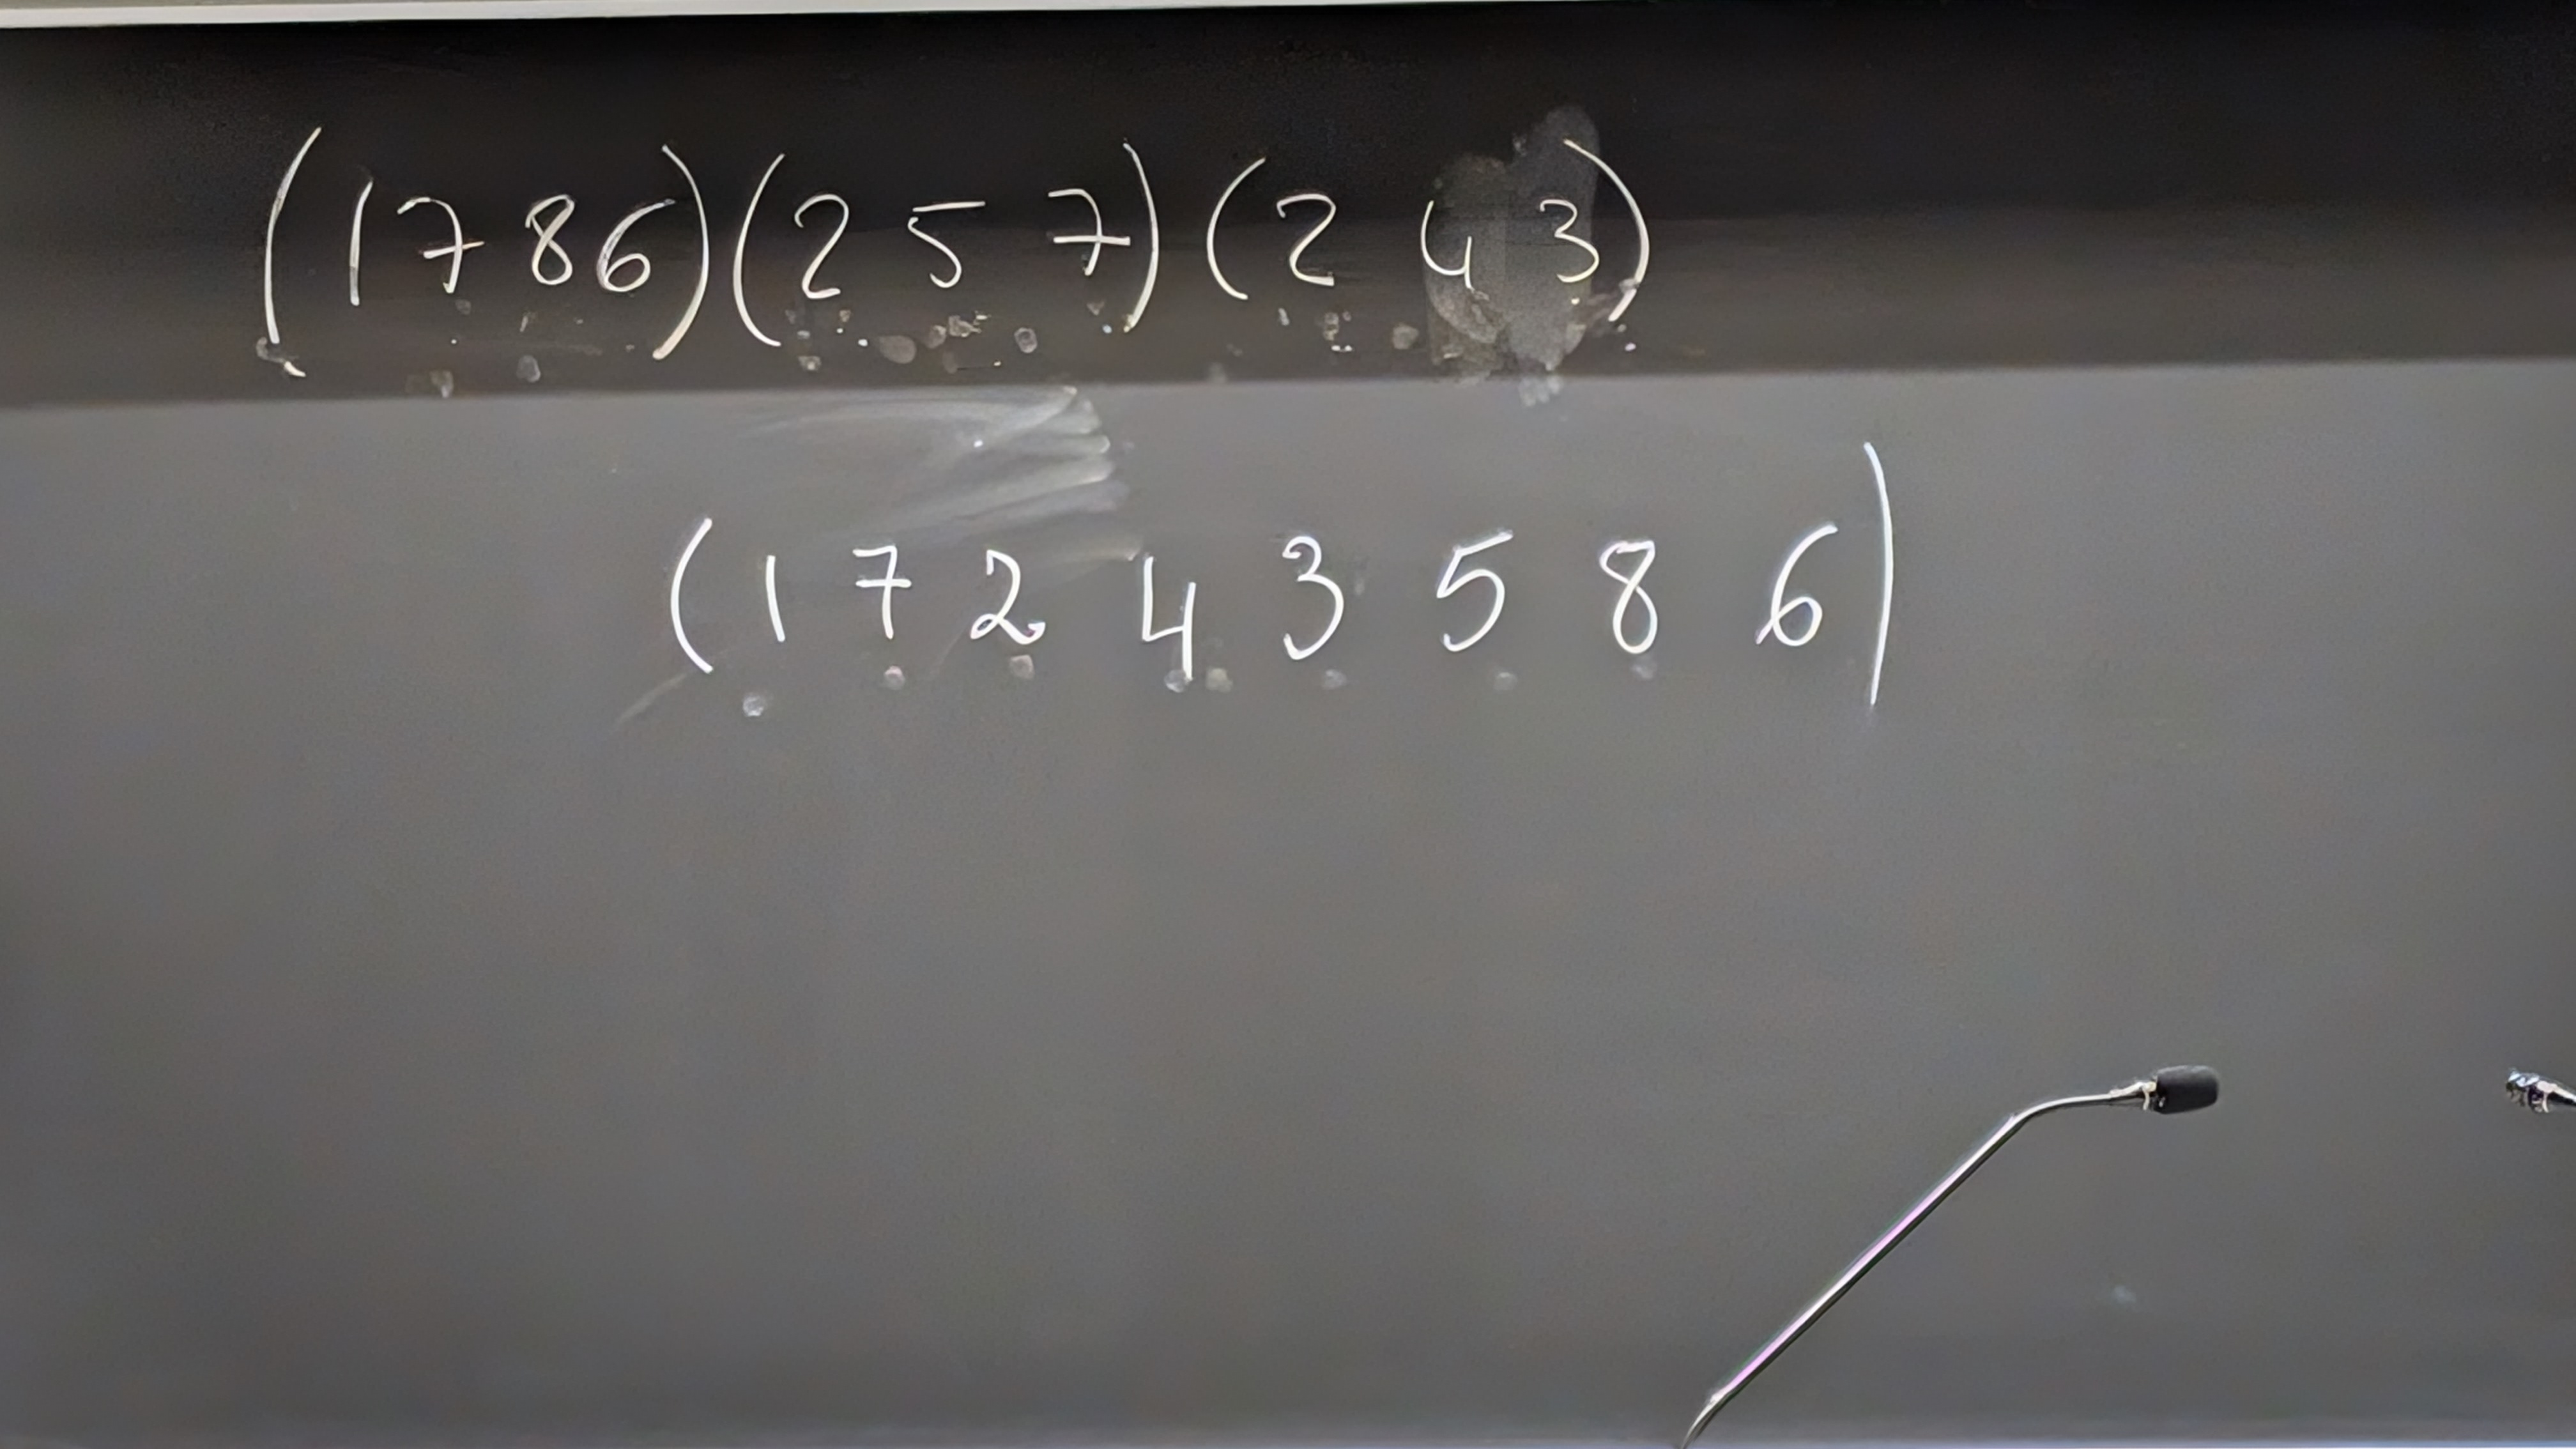 (1786)(257)(243)
(17243586)